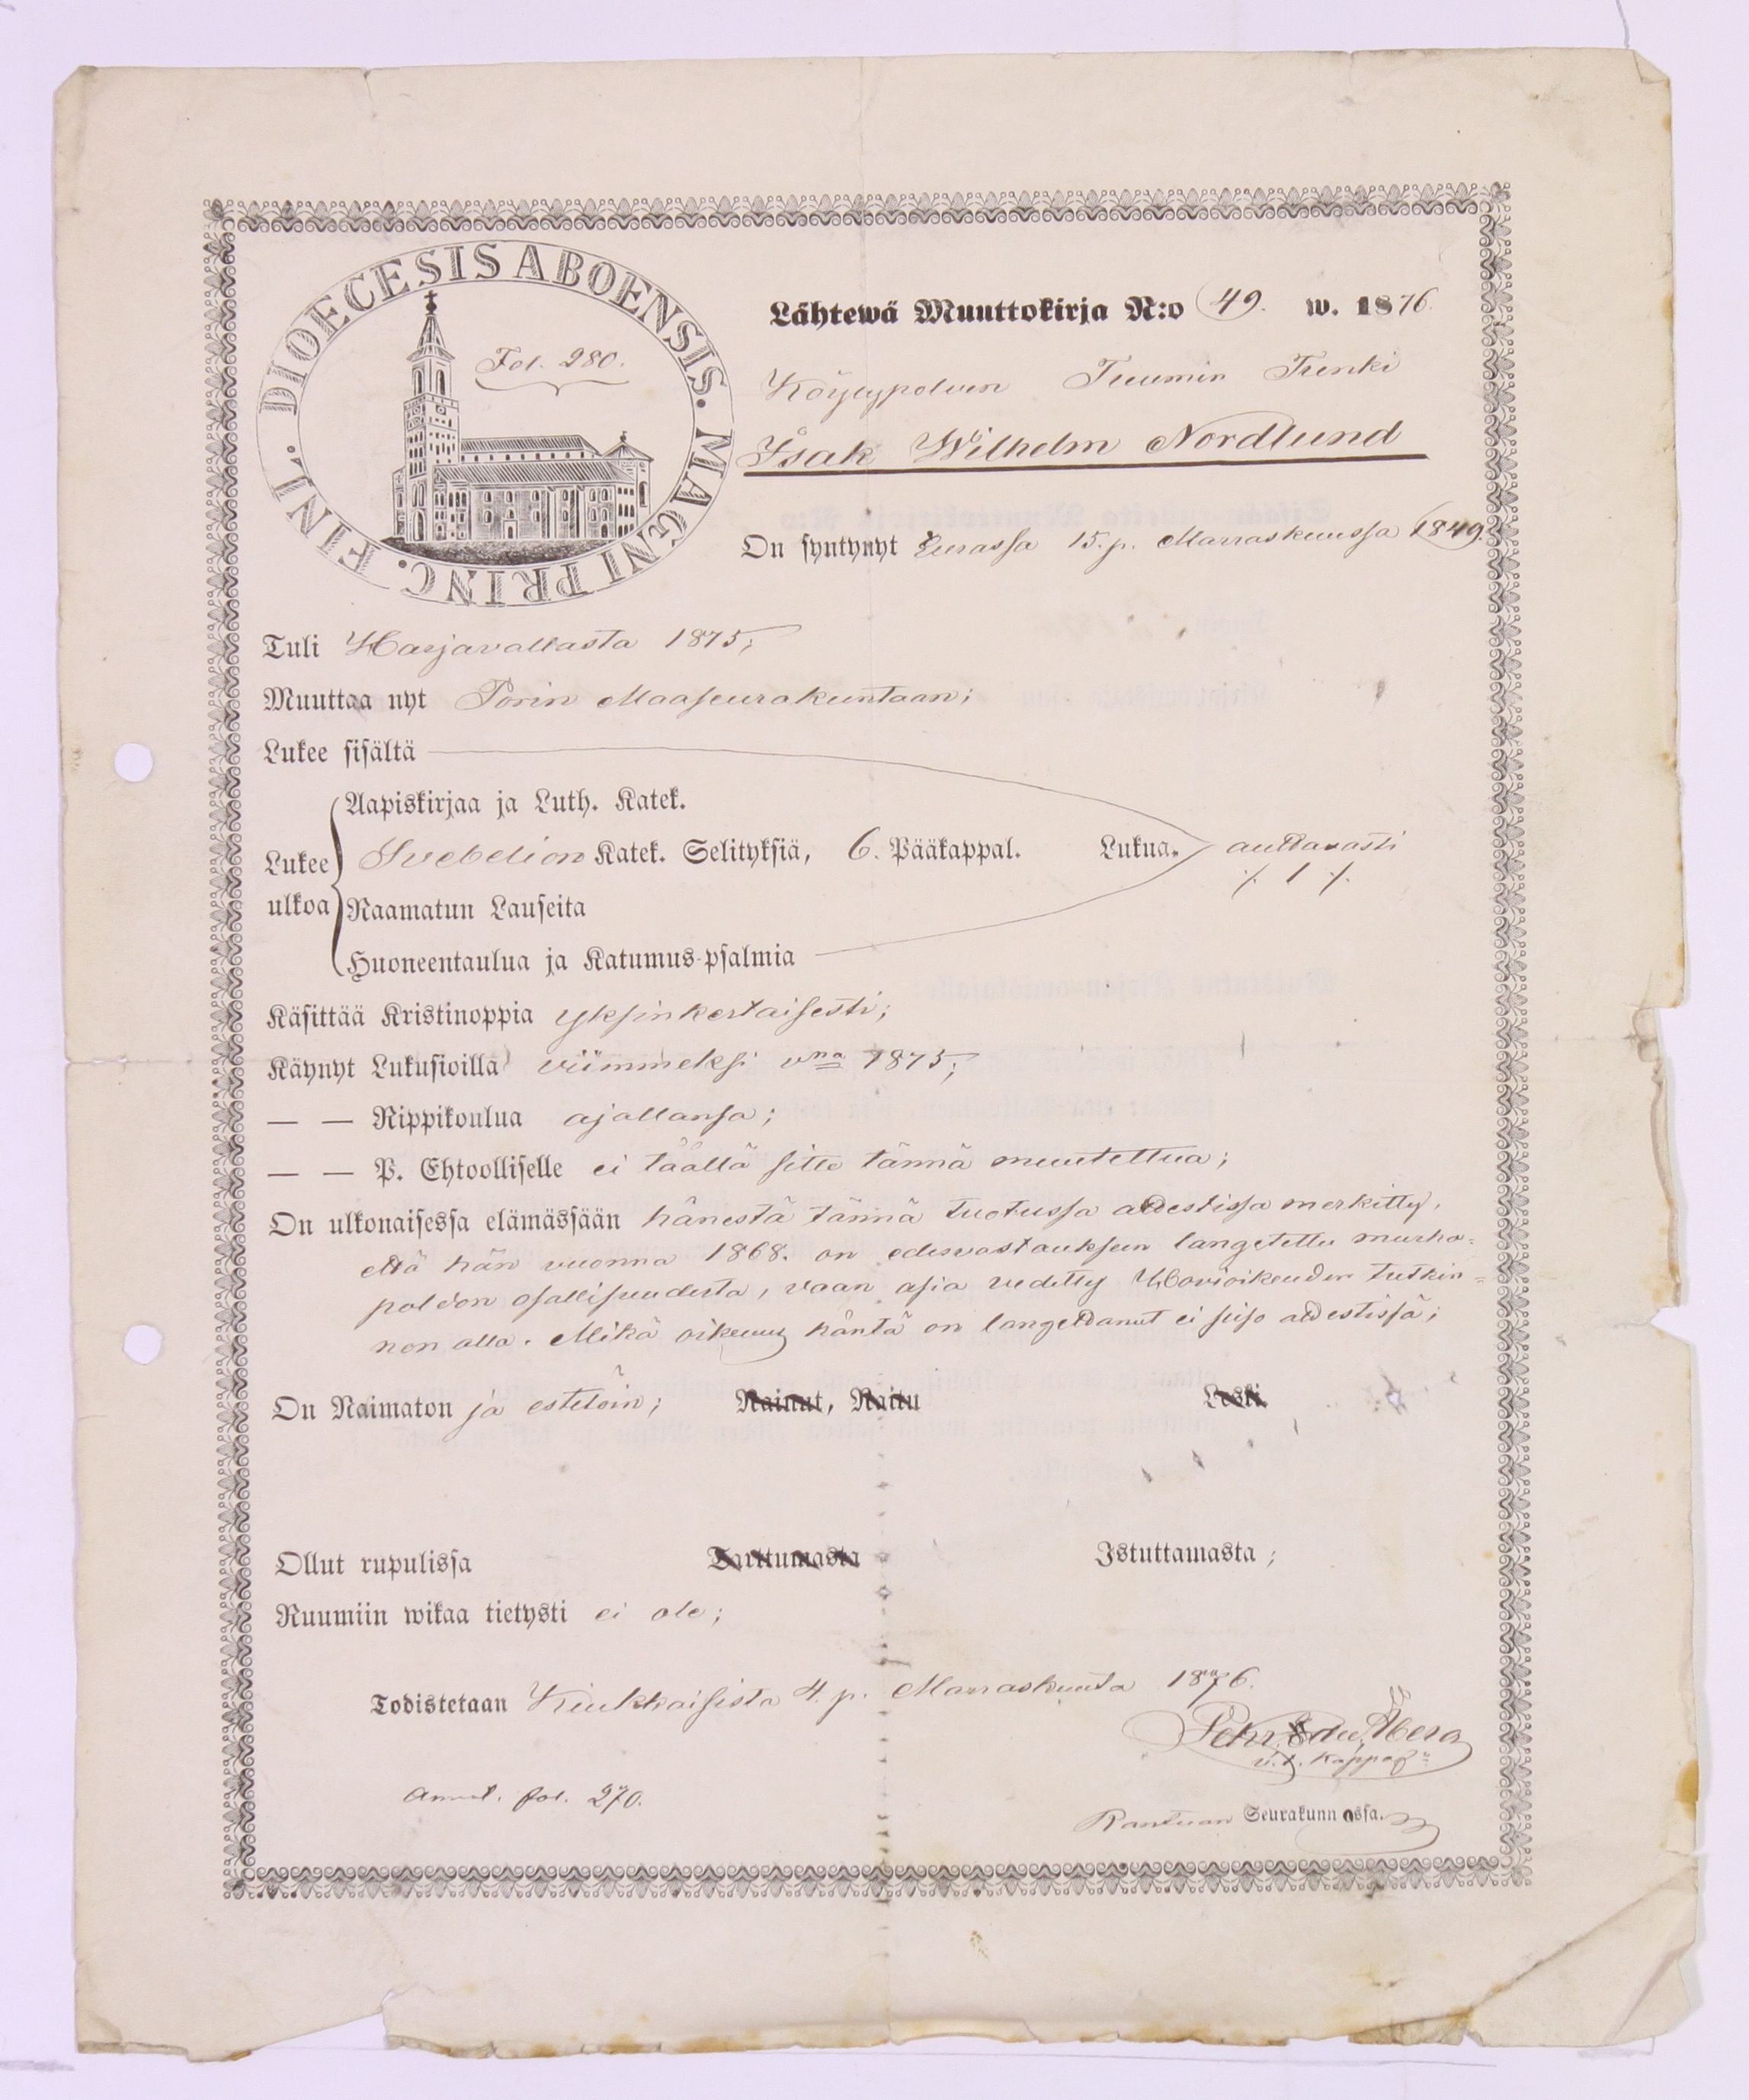 DIOECESIS ABOENSIS. MAGNI PRINC. FINL.
Fol. 280.
Lähtewä Muuttokirja N:o 49. w. 1876.
Köylypolven Tuumin Renki
Isak Wilhelm Nordlund
On syntynyt Eurassa 15. p. Marraskuussa 1849.
Tuli Harjavallasta 1875;
Muuttaa nyt Porin Maaseurakuntaan;
Lukee sisältä
Aapiskirjaa ja Luth. Katek.
Lukee ulkoa Svebelion Katek. Selityksiä, 6. Pääkappal. Lukua. auttavasti
./. 1 ./.
Raamatun Lauseita
Huoneentaulua ja Katumus-psalmia
Käsittää Kristinoppia yksinkertaisesti;
Käynyt Lukusioilla viimmeksi vna 1875;
— — Rippikoulua ajallansa;
— — P. Ehtoolliselle ei täällä sitte tännä muutettua;
On ulkonaisessa elämässään hänestä tännä tuotussa attestissa merkitty,
että hän vuonna 1868. on edesvastaukseen langetettu murha=
polton osallisuudesta, vaan asia vedetty Hovioikeuden tutkin=
non alla. Mikä oikeuus häntä on langettanut ei seiso attestissä;
On Naimaton ja estetöin; Nainut, Naitu Leski
Ollut rupulissa Tarttumasta Istuttamasta;
Ruumiin wikaa tietysti ei ole;
Todistetaan Kiukkaisista 4. p. Marraskuuta 1876.
Åberg
v.t. Kappal:
Annot. fol. 270.
Seurakunnassa.